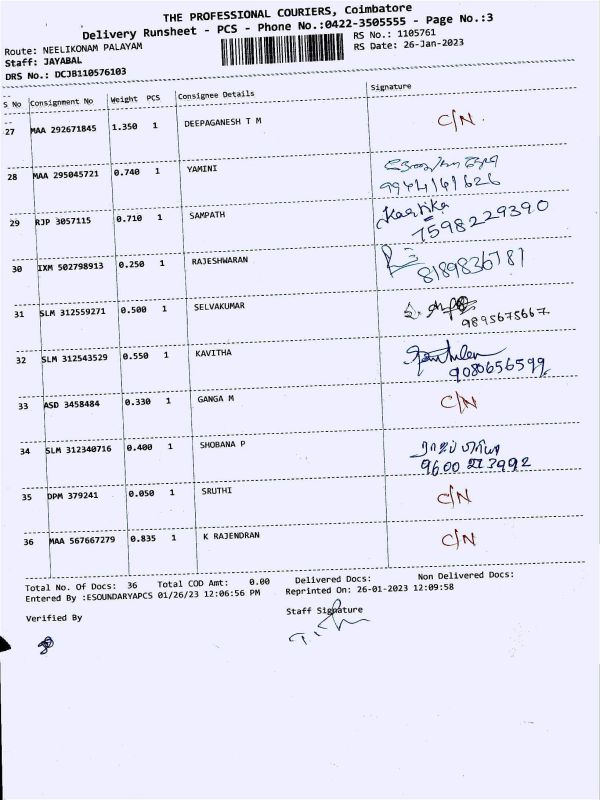 THE PROFESSIONAL COURIERS, Coimbatore
Delivery Runsheet - PCS - Phone No.:0422-3505555 - Page No.:3
Route: NEELIKONAM PALAYAM
RS No.: 1105761
Staff: JAYABAL
RS Date: 26-Jan-2023
DRS No.: DCJB110576103
S No Consignment No Weight PCS Consignee Details Signature
27 MAA 292671845 1.350 1 DEEPAGANESH T M C/N.
28 MAA 295045721 0.740 1 YAMINI
9944161626
29 RJP 3057115 0.710 1 SAMPATH Kaartika
7598229390
30 IXM 502798913 0.250 1 RAJESHWARAN
8189836781
31 SLM 312559271 0.500 1 SELVAKUMAR
9895675667
32 SLM 312543529 0.550 1 KAVITHA
9080656599
33 ASD 3458484 0.330 1 GANGA M C/N
34 SLM 312340716 0.400 1 SHOBANA P
9600 3992
35 DPM 379241 0.050 1 SRUTHI C/N
36 MAA 567667279 0.835 1 K RAJENDRAN C/N
Total No. Of Docs: 36 Total COD Amt: 0.00 Delivered Docs: Non Delivered Docs:
Entered By :ESOUNDARYAPCS 01/26/23 12:06:56 PM Reprinted On: 26-01-2023 12:09:58
Verified By
Staff Signature